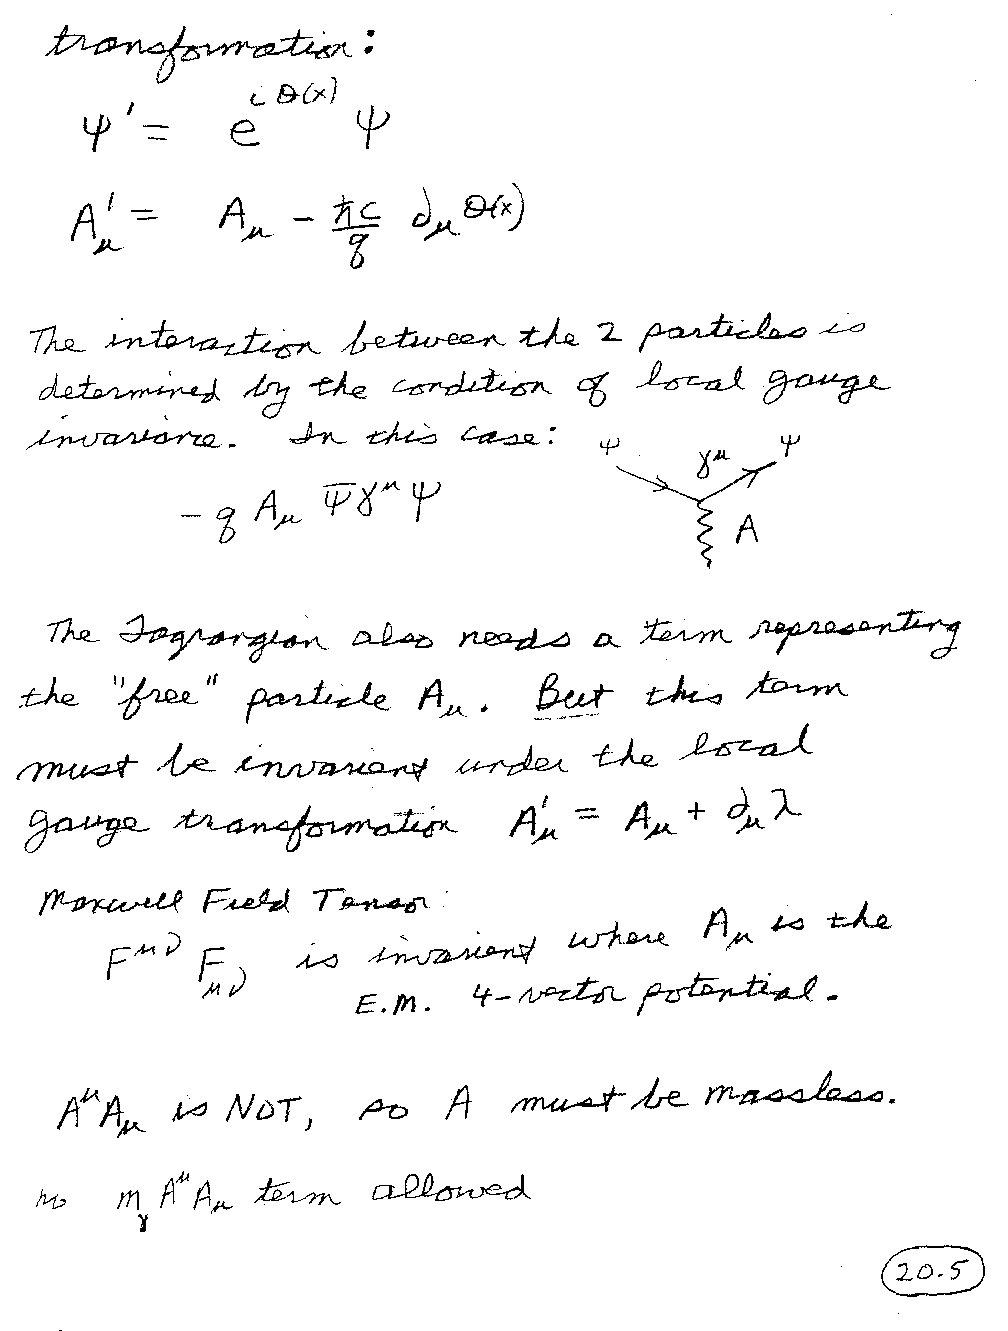 transformation:
ψ' = e^{iθ(x)} ψ
A'_μ = A_μ - ħc/q ∂_μ θ(x)
The interaction between the 2 particles is
determined by the condition of local gauge
invariance. In this case:
ψ γ^μ ψ
- q A_μ ψ̄ γ^μ ψ
A
The Lagrangian also needs a term representing
the "free" particle A_μ. But this term
must be invariant under the local
gauge transformation A'_μ = A_μ + ∂_μ λ
Maxwell Field Tensor:
F^{μν} F_{μν} is invariant where A_μ is the
E.M. 4-vector potential.
A^μ A_μ is NOT, so A must be massless.
no m_γ A^μ A_μ term allowed
20.5